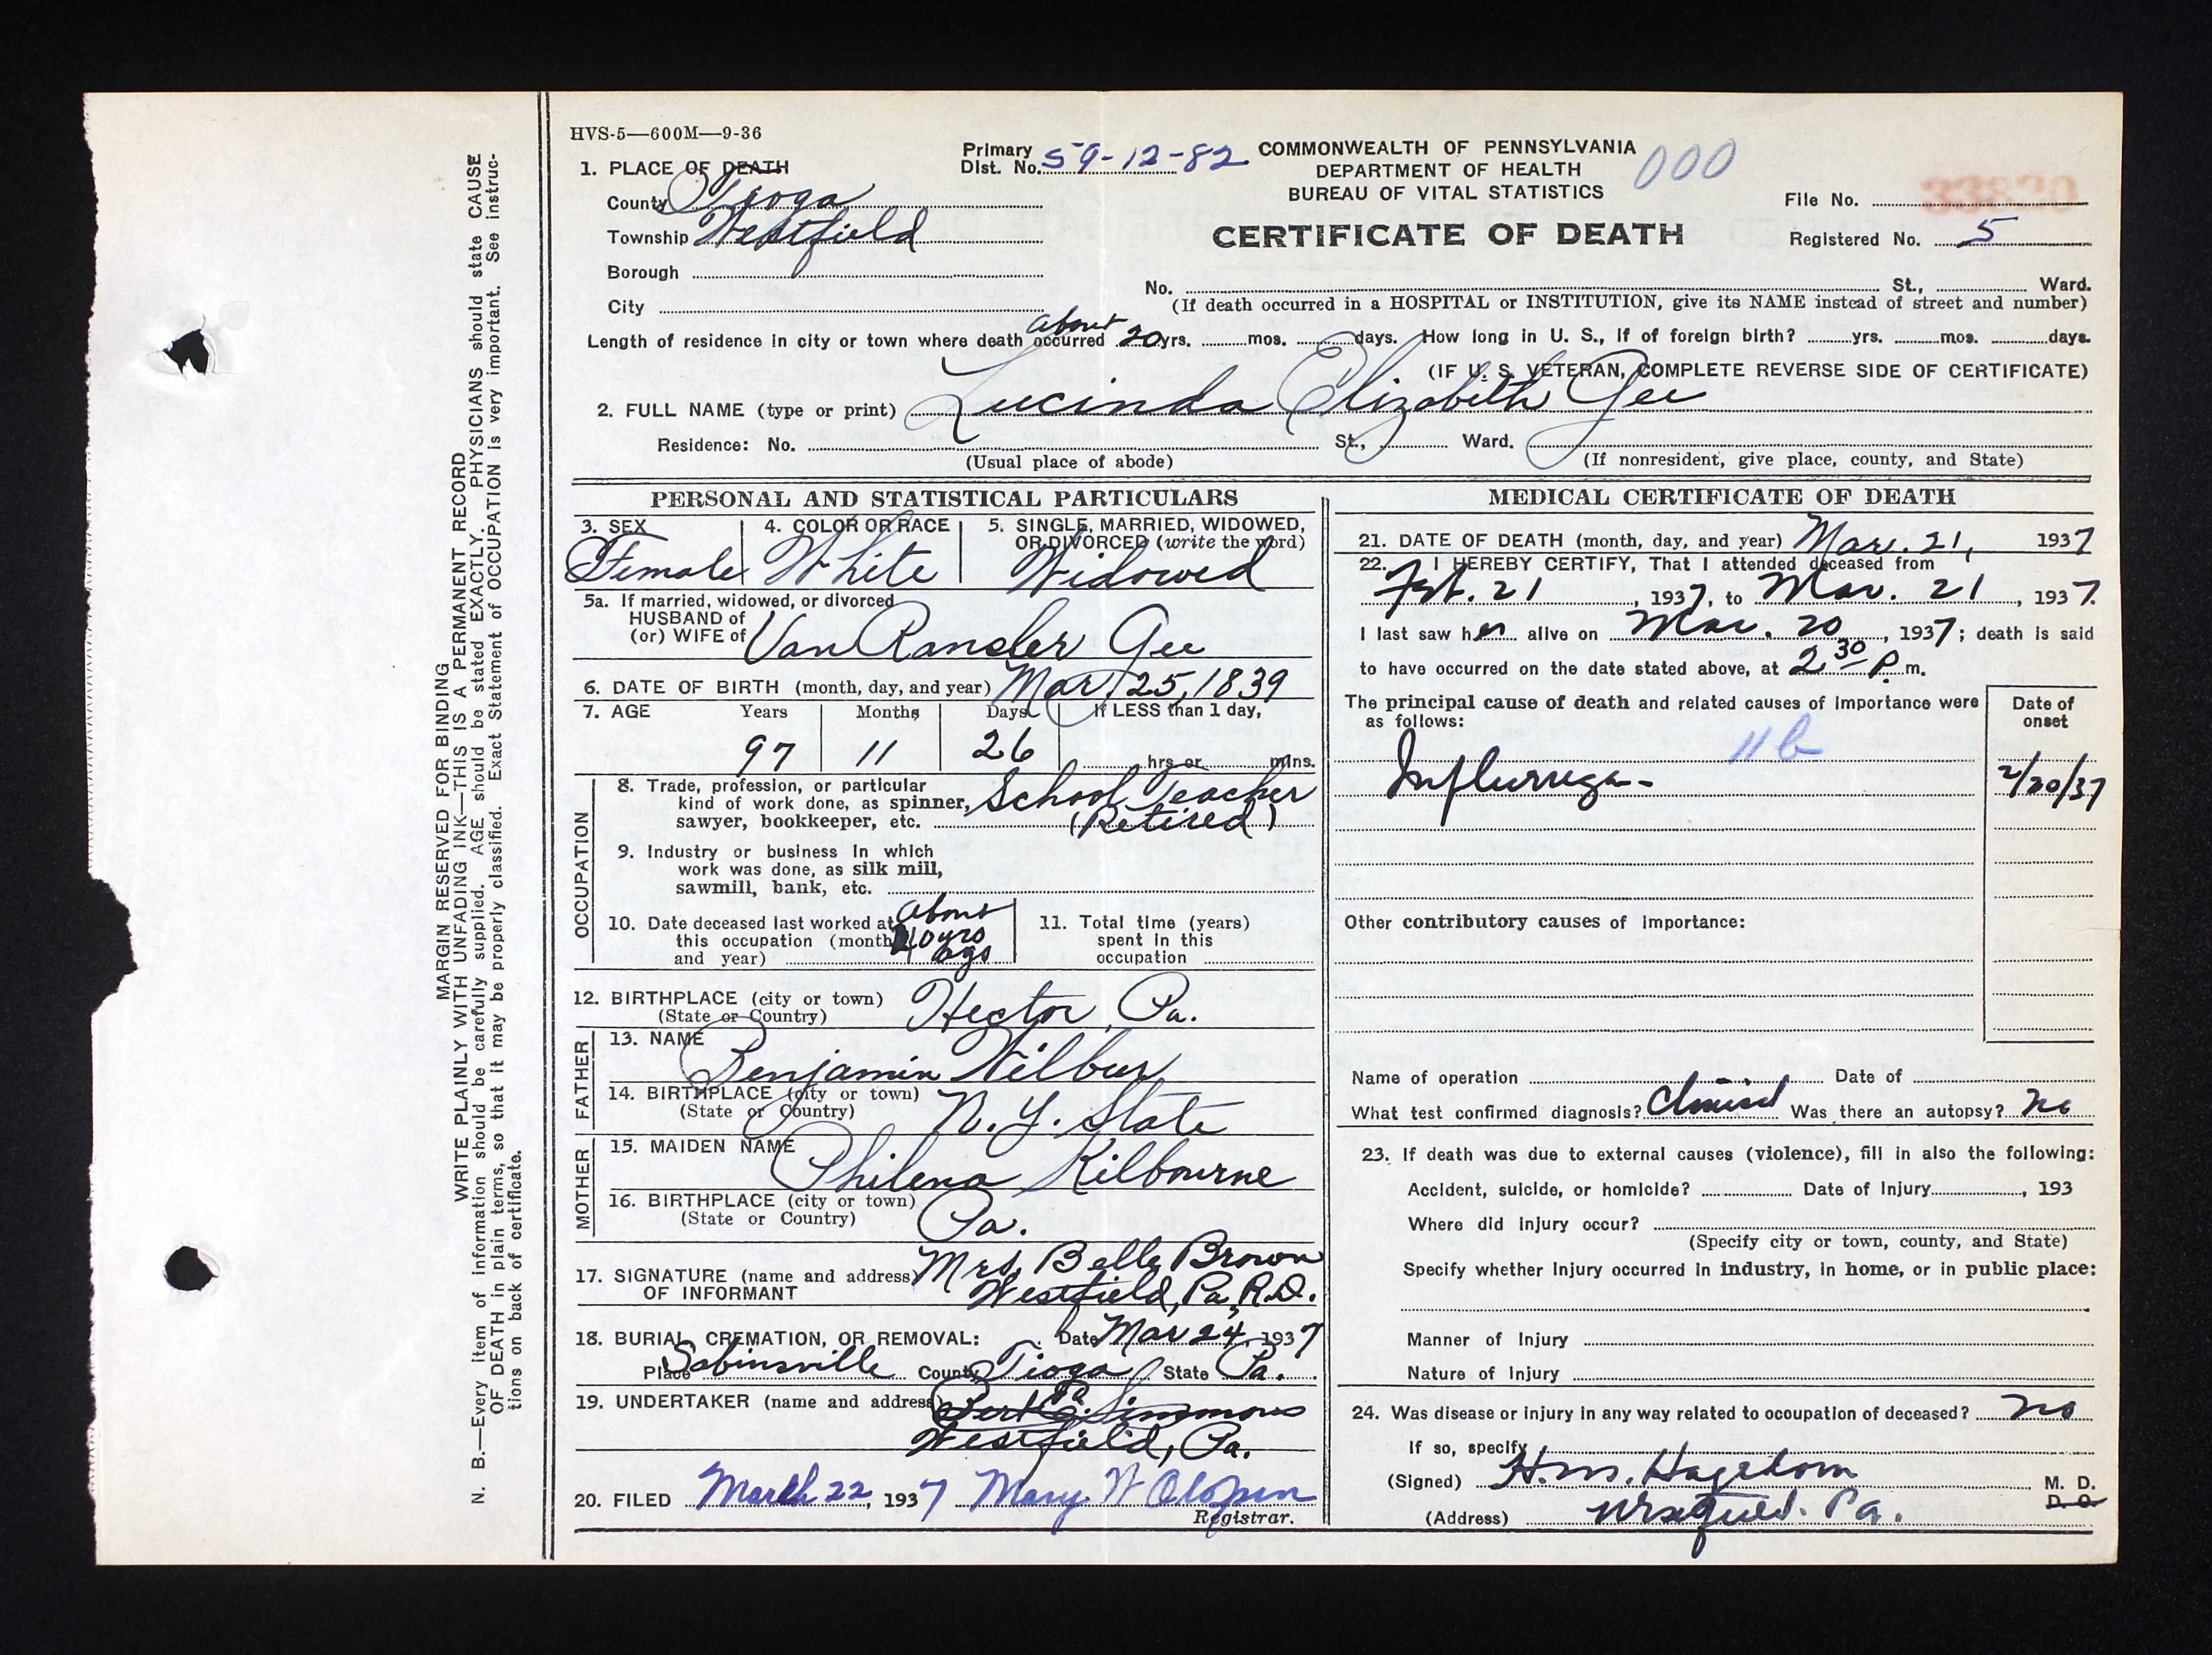 HVS-5—600M—9-36
Primary Dist. No. 59-12-82
COMMONWEALTH OF PENNSYLVANIA
DEPARTMENT OF HEALTH
BUREAU OF VITAL STATISTICS
000
CERTIFICATE OF DEATH
File No. 33820
Registered No. 5
1. PLACE OF DEATH
County Tioga
Township Westfield
Borough
City
No. St., Ward.
(If death occurred in a HOSPITAL or INSTITUTION, give its NAME instead of street and number)
Length of residence in city or town where death occurred about 20 yrs. mos. days. How long in U. S., if of foreign birth? yrs. mos. days.
(IF U. S. VETERAN, COMPLETE REVERSE SIDE OF CERTIFICATE)
2. FULL NAME (type or print) Lucinda Elizabeth Gee
Residence: No. St., Ward.
(Usual place of abode) (If nonresident, give place, county, and State)
PERSONAL AND STATISTICAL PARTICULARS
3. SEX Female
4. COLOR OR RACE White
5. SINGLE, MARRIED, WIDOWED, OR DIVORCED (write the word) Widowed
5a. If married, widowed, or divorced
HUSBAND of
(or) WIFE of Van Ransler Gee
6. DATE OF BIRTH (month, day, and year) Mar. 25, 1839
7. AGE Years Months Days If LESS than 1 day,
97 11 26 hrs. or mins.
OCCUPATION
8. Trade, profession, or particular
kind of work done, as spinner, School Teacher
sawyer, bookkeeper, etc. (Retired)
9. Industry or business in which
work was done, as silk mill,
sawmill, bank, etc.
10. Date deceased last worked at
this occupation (month
and year) about 40 yrs ago
11. Total time (years)
spent in this
occupation
12. BIRTHPLACE (city or town) Hector, Pa.
(State or Country)
FATHER
13. NAME Benjamin Wilbur
14. BIRTHPLACE (city or town)
(State or Country) N. Y. State
MOTHER
15. MAIDEN NAME Philena Kilbourne
16. BIRTHPLACE (city or town)
(State or Country) Pa.
17. SIGNATURE (name and address) Mrs. Belle Brown
OF INFORMANT Westfield, Pa. R.D.
18. BURIAL, CREMATION, OR REMOVAL: Date Mar 24, 1937
Place Sabinsville County Tioga State Pa.
19. UNDERTAKER (name and address) Simmons
Westfield, Pa.
20. FILED March 22, 1937 Mary W
Registrar.
MEDICAL CERTIFICATE OF DEATH
21. DATE OF DEATH (month, day, and year) Mar. 21, 1937
22. I HEREBY CERTIFY, That I attended deceased from
Feb. 21, 1937, to Mar. 21, 1937.
I last saw her alive on Mar. 20, 1937; death is said
to have occurred on the date stated above, at 2 30 P. m.
The principal cause of death and related causes of importance were
as follows:
Date of
onset
11 b
Influenza- 2/20/37
Other contributory causes of importance:
Name of operation Date of
What test confirmed diagnosis? Clinical Was there an autopsy? no
23. If death was due to external causes (violence), fill in also the following:
Accident, suicide, or homicide? Date of Injury , 193
Where did injury occur?
(Specify city or town, county, and State)
Specify whether injury occurred in industry, in home, or in public place:
Manner of Injury
Nature of Injury
24. Was disease or injury in any way related to occupation of deceased? no
If so, specify
(Signed) H. M. Hagedorn M. D.
D. O.
(Address) Westfield. Pa.
MARGIN RESERVED FOR BINDING
WRITE PLAINLY WITH UNFADING INK—THIS IS A PERMANENT RECORD
N. B.—Every item of information should be carefully supplied. AGE should be stated EXACTLY. PHYSICIANS should state CAUSE
OF DEATH in plain terms, so that it may be properly classified. Exact Statement of OCCUPATION is very important. See instruc-
tions on back of certificate.